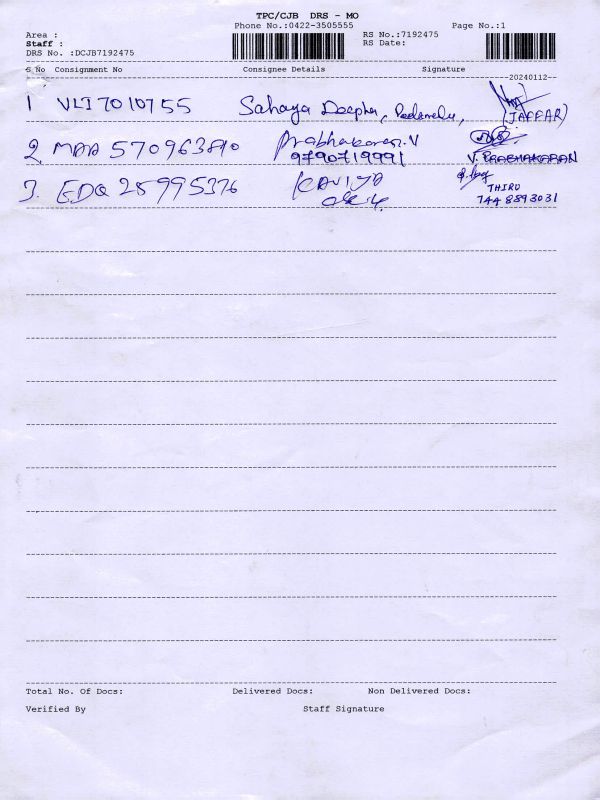 TPC/CJB DRS - MO
Phone No.:0422-3505555 Page No.:1
Area : RS No.:7192475
Staff : RS Date:
DRS No. :DCJB7192475
S No Consignment No Consignee Details Signature
20240112
1 VLI7010755 Sahaya Deepha, (JAFFAR)
2, MAA 570963890 Prabhakaran.V
9790719991 V. PRABHAKARAN
3. EDQ 25995376 KAVIYA
THIRU
744 8893031
Total No. Of Docs: Delivered Docs: Non Delivered Docs:
Verified By Staff Signature